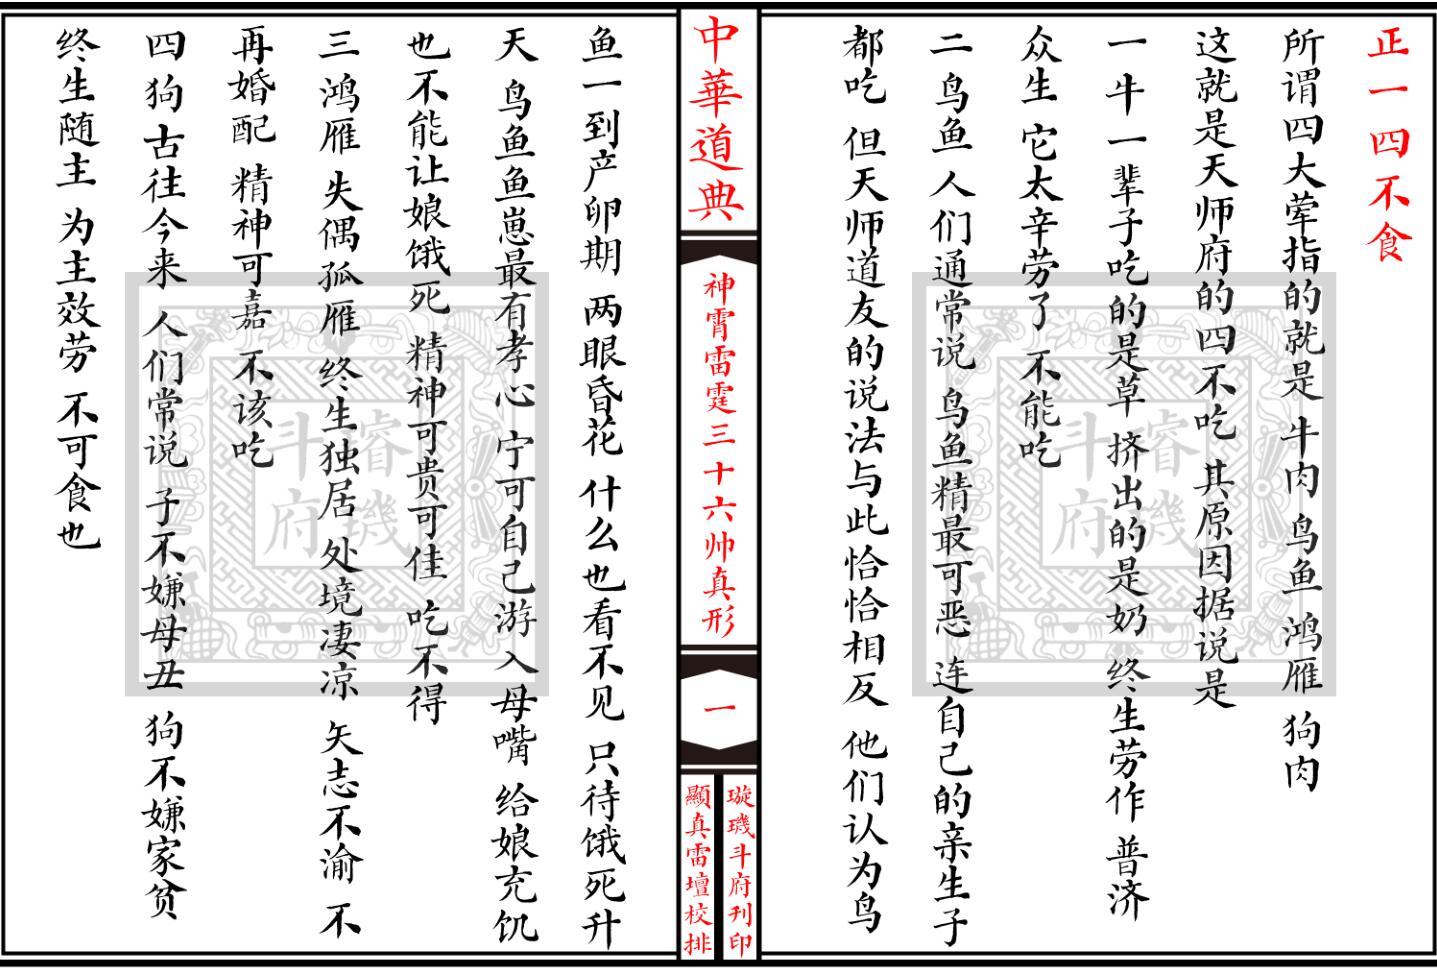 正一四不食
所谓四大荤指的就是 牛肉 鸟鱼 鸿雁 狗肉
这就是天师府的四不吃 其原因据说是
一 牛一辈子吃的是草 挤出的是奶 终生劳作 普济
众生 它太辛劳了 不能吃
二 鸟鱼 人们通常说 鸟鱼精最可恶 连自己的亲生子
都吃 但天师道友的说法与此恰恰相反 他们认为鸟
中華道典
神霄雷霆三十六帅真形
一
璇璣斗府刊印
顯真雷壇校排
鱼一到产卵期 两眼昏花 什么也看不见 只待饿死升
天 鸟鱼鱼崽最有孝心 宁可自己游入母嘴 给娘充饥
也不能让娘饿死 精神可贵可佳 吃不得
三 鸿雁 失偶孤雁 终生独居 处境凄凉 矢志不渝 不
再婚配 精神可嘉 不该吃
四 狗 古往今来 人们常说 子不嫌母丑 狗不嫌家贫
终生随主 为主效劳 不可食也
睿璣
斗府
睿璣
斗府